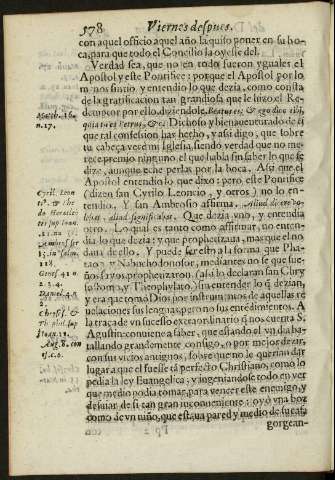 178 Viernes despues
con aquel officio aquel año la quiso poner en su bo-
ca, para que todo el Concilio la oyesse del.
Verdad sea, que no en todo fueron yguales el
Apostol y este Pontifice: porque el Apostol por lo
m nos sintio y entendio lo que dezia, como consta
de la gratificacion tan grandiosa que le hizo el Re-
demptor por ello, diziendole. Beatus es,
quia tu es Petrus, &c. Dichoso y bienauenturado de ti
que tal confession has hecho, y assi digo, que sobre
tu cabeça veré mi Iglesia, siendo verdad que no me-
rece premio ninguno el que habla sin saber lo que se
dize, aunque eche perlas por la boca. Assi que el
Apostol entendio lo que dixo; pero este Pontifice
(dizen san Cyrilo Leoncio, y otros) no lo en-
tendio. Y san Ambrosio affirma. Aliud
aliud significabat. Que dezia vno, y entendia
otro. Lo qual es tanto como affirmar, no enten-
dia lo que dezia: y que prophetizaua, mas que el no
daua dello. Y puede ser esto a la forma que
y Nabuchodonosor, mediantes no se que sue-
ños a vozes prophetizaron. (assi lo declaran san Chry
sostomo, y Theophylato) sin entender lo q̃ dezian,
y era que tomò Dios por instrumentos de aquellas re
uelaciones sus lenguas, pero no sus entendimientos. A
la traça de vn sucesso extraordinario q̃ nos cuenta S.
Agustin conuiene a saber, que estando el vn dia ba-
tallando grandemente consigo, o por mejor dezir,
con sus vicios antiguos, sobre que no le querian dar
lugar a que el fuesse tã perfecto Christiano, como lo
pedia la ley Euangelica; y ingeniandose todo en ver
que medio podia tomar, para vencer este enemigo, y
desuiar de si tan gran inconueniente: oyò vna boz
como de vn niño, que estaua pared y medio de su casa
gorgean-
Matth. 16.
n. 17.
Cyril. Leon
tius
Genes. 41. n
2. 3. 4.
Daniel. 4. n
2.
Chrysost. &
Theophil. sup
Ioan. 11.
Aug. 8. con
f. c.